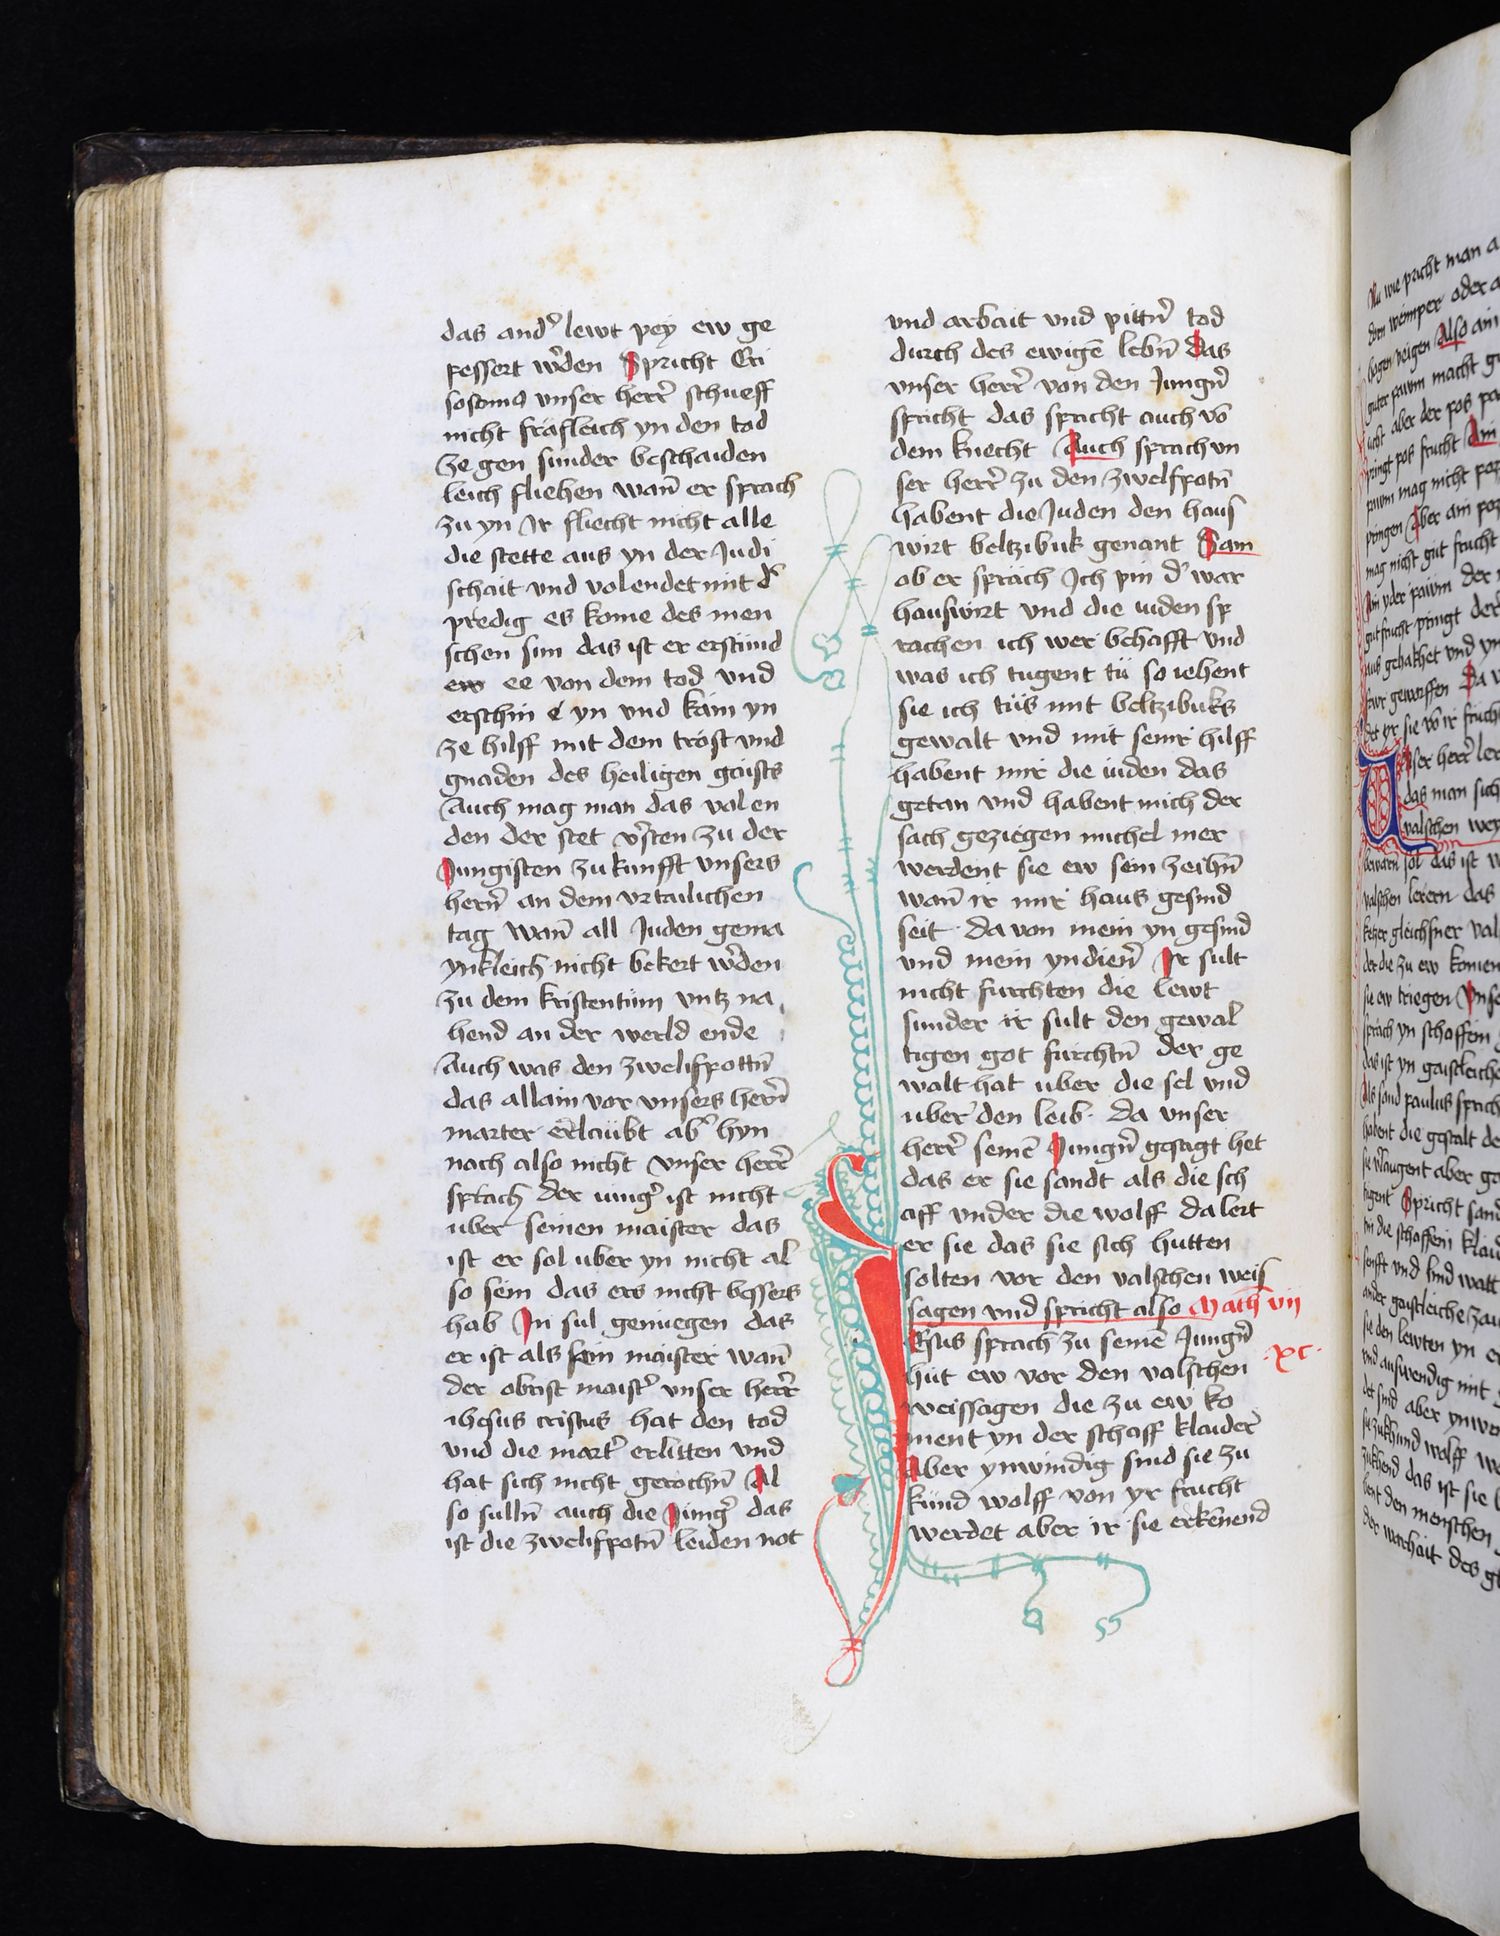 das andˀ lewt pey ew ge
pessert wˀden Spricht Cri
sosomus unser herr̄ schueff
nicht frafleich yn den tod
ze gen sunder beschaiden
leich fliehen wan̄ er sprach
zu yn Ir fliecht nicht alle
die stette aus yn der Judi
schait vnd volendet mit dˀ
predig es kome des men
schen sun das ist er erstund
ee von dem tod vnd
erschin yn vnd kam yn
ze hilff mit dem trost vnd
gnaden des heiligen gaists
Auch mag man das volen
den der stet vˀsten zu der
Jungisten zukunfft vnsers
hern̄ an dem vrtailichen
tag wan̄ all Juden gema
ynkleich nicht bekert wˀden
zu dem kristentum vntz na
hend an der werld ende
Auch was den zwelifpottn̄
das allain vor vnsers hern̄
marter erlaubt abˀ hyn
nach also nicht vnser herr̄
sprach der iungˀ ist nicht
uber seinen maister das
ist er sol uber yn nicht al
so sein das ers nicht bessers
hab In sul genuegen das
er ist als sein maister wan̄
der obrist maistˀ vnser herr̄
ihesus cristus hat den tod
vnd die martˀ erlitten vnd
hat sich nicht gerochn̄ Al
so sulln̄ auch die Jungˀ das
ist die zwelifpotn̄ leiden not
vnd arbait vnd pittn̄ tod
durch des ewigē lebn̄ Das
vnser herr̄ von den Jungn̄
spricht das spricht auch vō
dem knecht Auch sprach vn
ser herr̄ zu den zwelfpotn̄
habent die Juden den haus
wirt beltzibuk genant Sam
ob er sprach Ich pin dˀ war
hauswirt vnd die iuden sp
rachen ich wer behafft vnd
was ich tugent tu so iehent
sie ich tus mit beltzibuks
gewalt vnd mit seinr hilff
habent mir die iuden das
getan vnd habent mich der
sach geziegen michel mer
werdent sie ew sein zeihn̄
wan̄ ir mir haus gesind
seit da von mein yn gesind
vnd mein yndien̄ Ir sult
nicht furchten die lewt
sunder ir sult den gewal
tigen got furchtn̄ der ge
walt hat uber die sel vnd
uber den leib. da vnser
herr̄ seinē Jungn̄ gesagt het
das er sie sandt als die sch
aff vnder die wolff da lert
er sie das sie sich hutten
solten vor den valschen weis
sagen vnd spricht also Math vij
Esus sprach zu seinē Jungn̄
hut ew vor den valschen ·xc·
weissagen die zu ew ko
ment yn der schaff klaider
Aber ynwindig sind sie zu
kund wolff von yr frucht
werdet aber ir sie erkēnend
Nu wie pricht man a
dem weimper oder a
Also ain
guter pawm macht gu
ucht aber der pos pa
pringt pos frucht Ain
pawm mag nicht pos
pringen Aber ain pos
mag nicht gut frucht
gut frucht pringt der
aus gehakhet vnd yn
fewr geworffen Da v
det yr sie vō ir frucht
ser herr ler
das man sich
valschen wey
bewarn sol das ist w
valschen lerern das
ketzer gleichsner val
der die zu ew komen
sie ew triegen Vnse
sprach yn schaffein
das ist yn gaistleiche
Als sand paulus sprich
habent die gestalt de
sie vˀlaugent aber ge
Spricht sand
yn die schaffein klaid
senfft vnd lind watt
ander gaistleiche zai
sie den lewten yn e
vnd auswendig mit
det sind aber ynwe
wolff we
zukhend das ist sie
bent den menschen
der warhait des gl